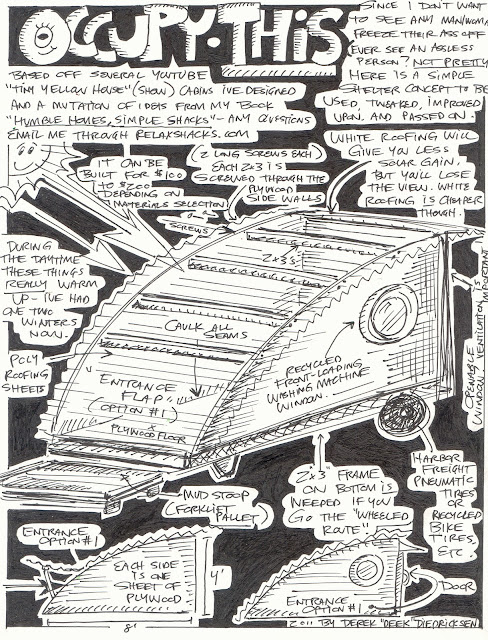 OCCUPY·THIS
BASED OFF SEVERAL YUTUBE
"TINY YELLOW HOUSE" (SHOW) CABINS I'VE DESIGNED
AND A MUTATION OF IDEAS FROM MY BOOK
"HUMBLE HOMES, SIMPLE SHACKS" - ANY QUESTIONS
EMAIL ME THROUGH RELAXSHACKS.COM
SINCE I DON'T WANT
TO SEE ANY MAN/WOMAN
FREEZE THEIR ASS OFF
EVER SEE AN ASSLESS
PERSON? NOT PRETTY
HERE IS A SIMPLE
SHELTER CONCEPT TO BE
USED, TWEAKED, IMPROVED
UPON, AND PASSED ON.
IT CAN BE
BUILT FOR $100
TO $200
DEPENDING ON
MATERIALS SELECTION
(2 LONG SCREWS EACH)
EACH 2x3 IS
SCREWED THROUGH THE
PLYWOOD
SIDE WALLS
WHITE ROOFING WILL
GIVE YOU LESS
SOLAR GAIN,
BUT YOU'LL LOSE
THE VIEW. WHITE
ROOFING IS CHEAPER
THOUGH.
SCREWS
2x3's
DURING
THE DAYTIME
THESE THINGS
REALLY WARM
UP - I'VE HAD
ONE TWO
WINTERS
NOW.
POLY
ROOFING
SHEETS
CAULK ALL
SEAMS
ENTRANCE
FLAP
(OPTION #1)
PLYWOOD FLOOR
RECYCLED
FRONT-LOADING
WASHING MACHINE
WINDOW.
OPENABLE
WINDOW! VENTILATION IS
IMPORTANT
MUD STOOP
(FORKLIFT
PALLET)
2x3" FRAME
ON BOTTOM IS
NEEDED IF YOU
GO THE "WHEELED
ROUTE"
HARBOR
FREIGHT
PNEUMATIC
TIRES
OR
RECYCLED
BIKE
TIRES,
ETC.
ENTRANCE
OPTION #1
EACH SIDE
IS ONE
SHEET OF
PLYWOOD
4'
8'
DOOR
ENTRANCE OPTION #1
2011 BY DEREK "DEEK" DIEDRICKSEN